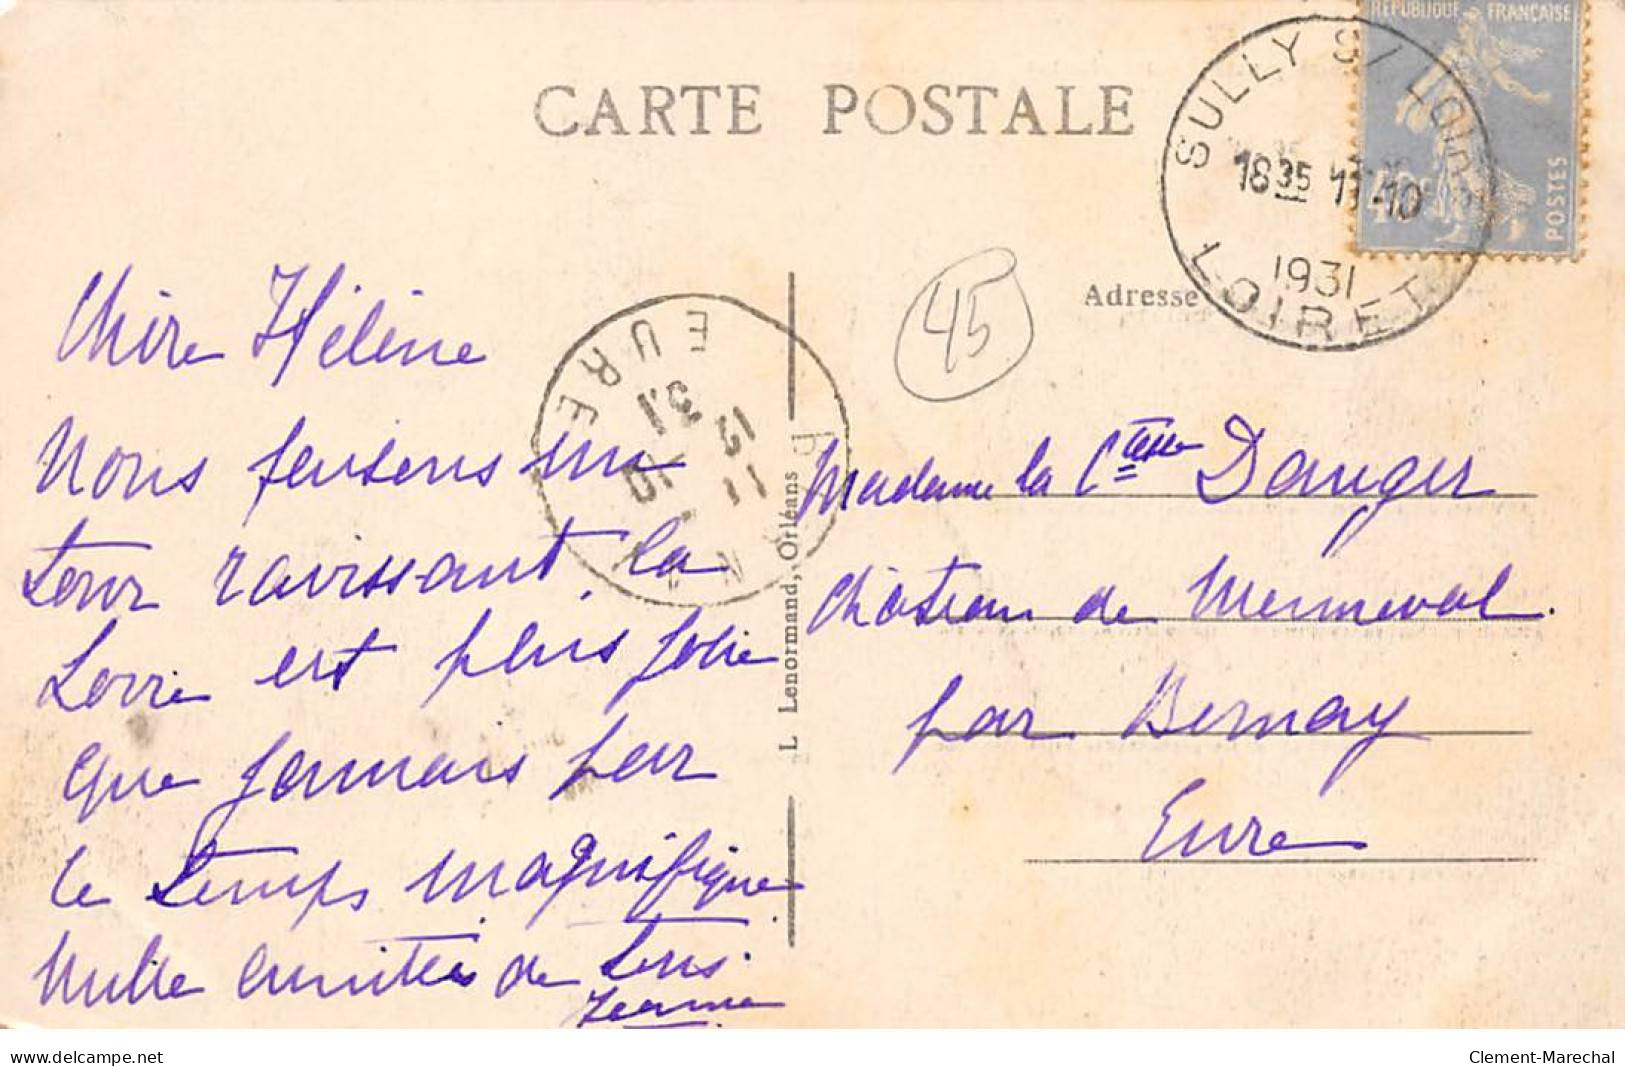 CARTE POSTALE
RÉPUBLIQUE FRANÇAISE
40c POSTES
SULLY S/ LOIRE
18 35 11-10
1931
LOIRET
45
Adresse
EURE
11 12
10 31
L Lenormand, Orléans
Chère Hélène
Nous faisons un
tour ravissant, la
Loire est plus jolie
que jamais par
ce temps magnifique
Mille amitiés de tous.
Jeanne
Madame la Ctesse Dauger
Château de Menneval.
par Bernay
Eure
www.delcampe.net
Clement-Marechal